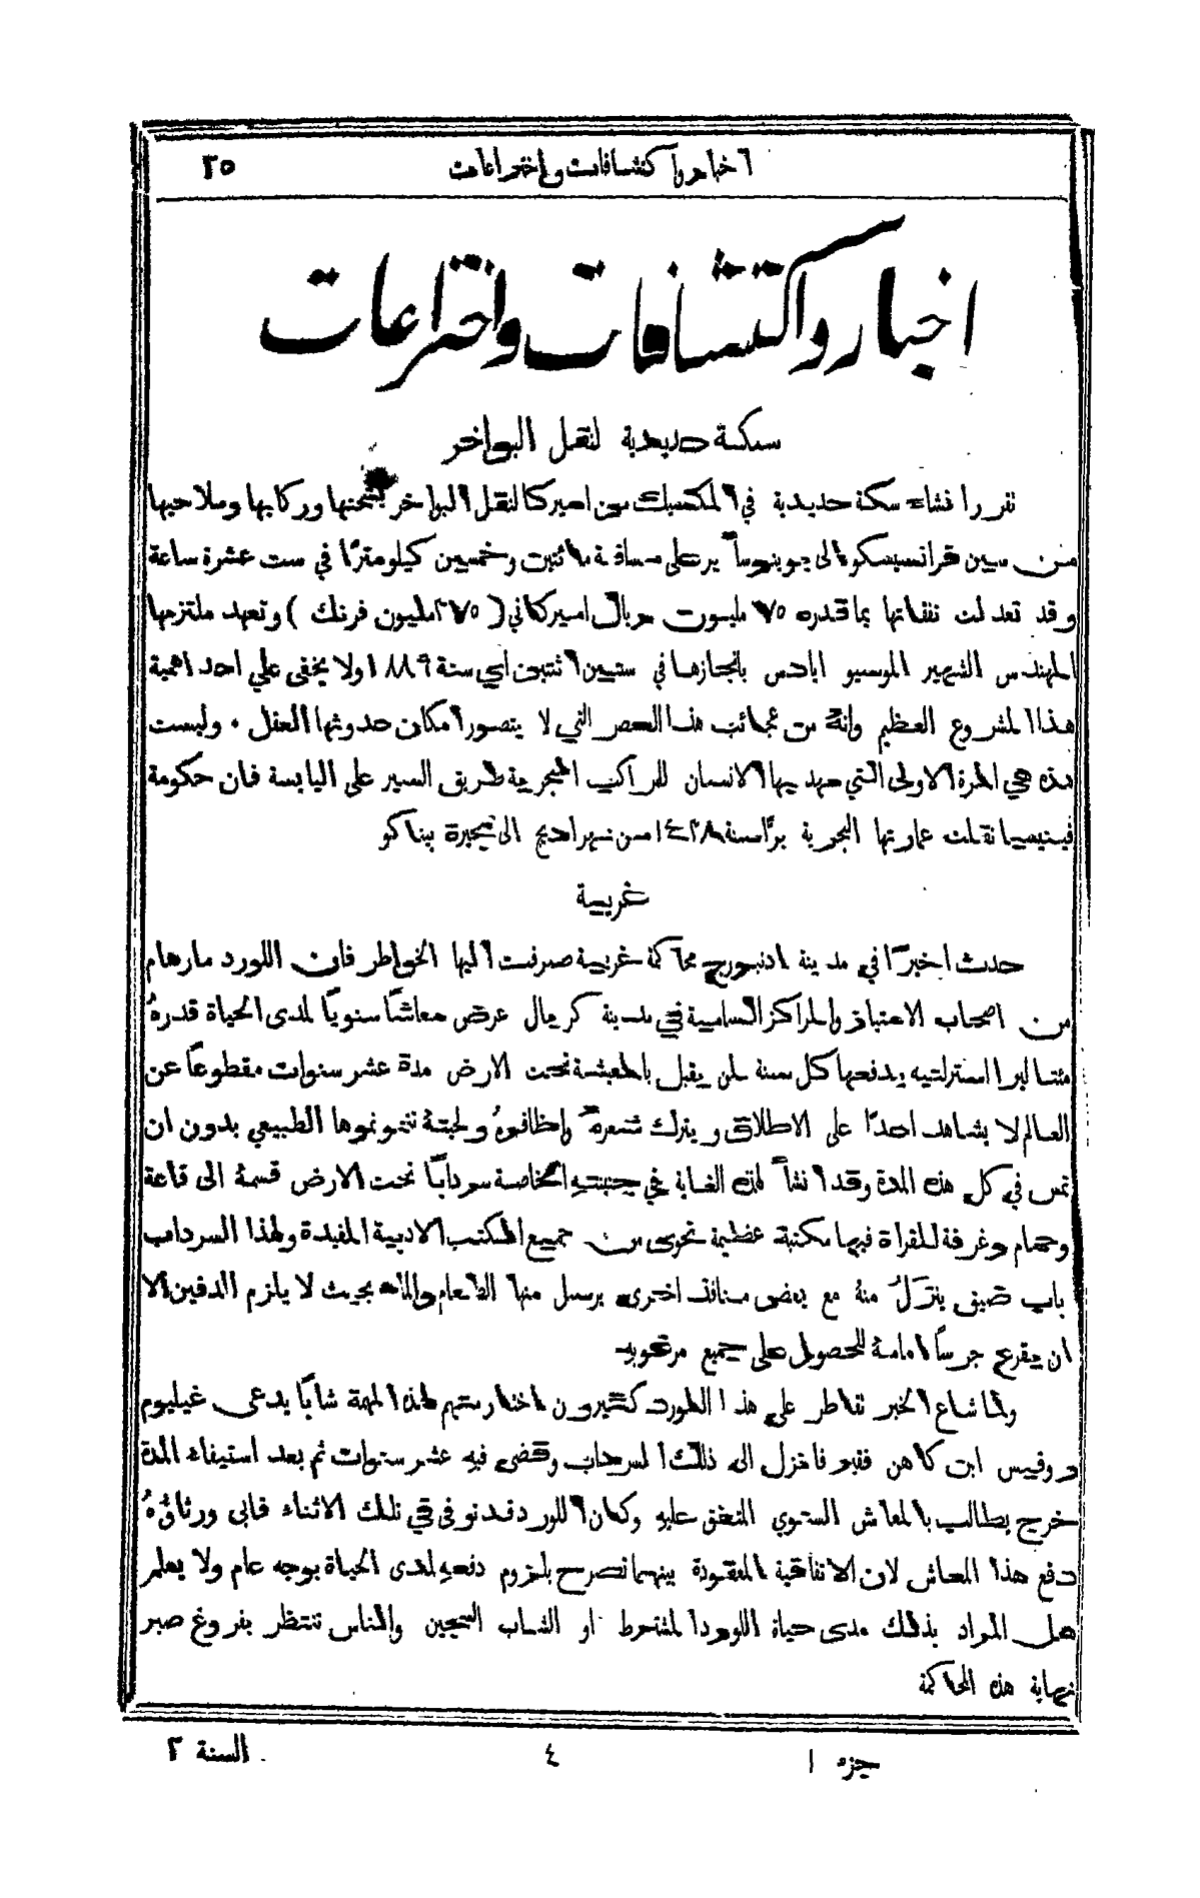 اخبار واكتشافات واختراعات ٢٥
اخبار واكتشافات واختراعات
سكة حديدية لنقل البواخر
تقرر انشاء سكة حديدية في المكسيك من اميركا لنقل البواخر بشحنها وركابها وملاحيها
من سين فرانسيسكو الى جوينوسا برًّا على مسافة مائتين وخمسين كيلومترًا في ست عشرة ساعة
وقد تعدلت نفقاتها بما قدره ٧٥ مليون ريال اميركاني (٣٧٥ مليون فرنك) وتعهد ملتزمها
المهندس الشهير الموسيو ايادس بانجازها في سنتين اثنتين اي سنة ١٨٨٩ ولا يخفى على احد اهمية
هذا المشروع العظيم وانهُ من عجائب هذا العصر التي لا يتصور امكان حدوثها العقل . وليست
هذه هي المرة الاولى التي مهد بها الانسان للمراكب البحرية طريق السير على اليابسة فان حكومة
فينيسيا نقلت عمارتها البحرية برًّا سنة ١٤٣٨ من نهر اديج الى بحيرة بيناكو
غريبة
حدث اخيرًا في مدينة ادنبورج محاكمة غريبة صرفت اليها الخواطر فان اللورد مارهام
من اصحاب الامتياز والمراكز السامية في مدينة كريمال عرض معاشًا سنويًا لمدى الحياة قدرهُ
مئتا ليرا استرلنيه يدفعها كل سنة لمن يقبل بالمعيشة تحت الارض مدة عشر سنوات مقطوعًا عن
العالم لا يشاهد احدًا على الاطلاق ويترك شعرهُ واظافرهُ ولحيتهُ تنمو نموها الطبيعي بدون ان
تمس في كل هذه المدة وقد انشأ لهذه الغاية في جنينتهِ الخاصة سردابًا تحت الارض قسمهُ الى قاعة
وحمام وغرفة للقراة فيها مكتبة عظيمة تحوي من جميع المكتب الادبية المفيدة ولهذا السرداب
باب ضيق ينزل منهُ مع بعض منافذ اخرى يرسل منها الطعام والماء بحيث لا يلزم الدفين الا
ان يقرع جرسًا امامهُ للحصول على جميع مرغوبهِ
ولما شاع الخبر تقاطر على هذا اللورد كثيرون اختار منهم لهذا المهمة شابًا يدعى غيليوم
دوفييس ابن كاهن فقير فانزل الى ذلك السرداب وقضى فيهِ عشر سنوات ثم بعد استيفاء المدة
خرج يطالب بالمعاش السنوي المتفق عليهِ وكان اللورد قد توفى في تلك الاثناء فابى ورثاؤهُ
دفع هذا المعاش لان الاتفاقية المعقودة بينهما تصرح بلزوم دفعهِ لمدى الحياة بوجه عام ولا يعلم
هل المراد بذلك مدى حياة اللورد المشترط او الشاب السجين والناس تنتظر بفروغ صبر
نهاية هذه المحاكمة
جزء ١ ٤ السنة ٢